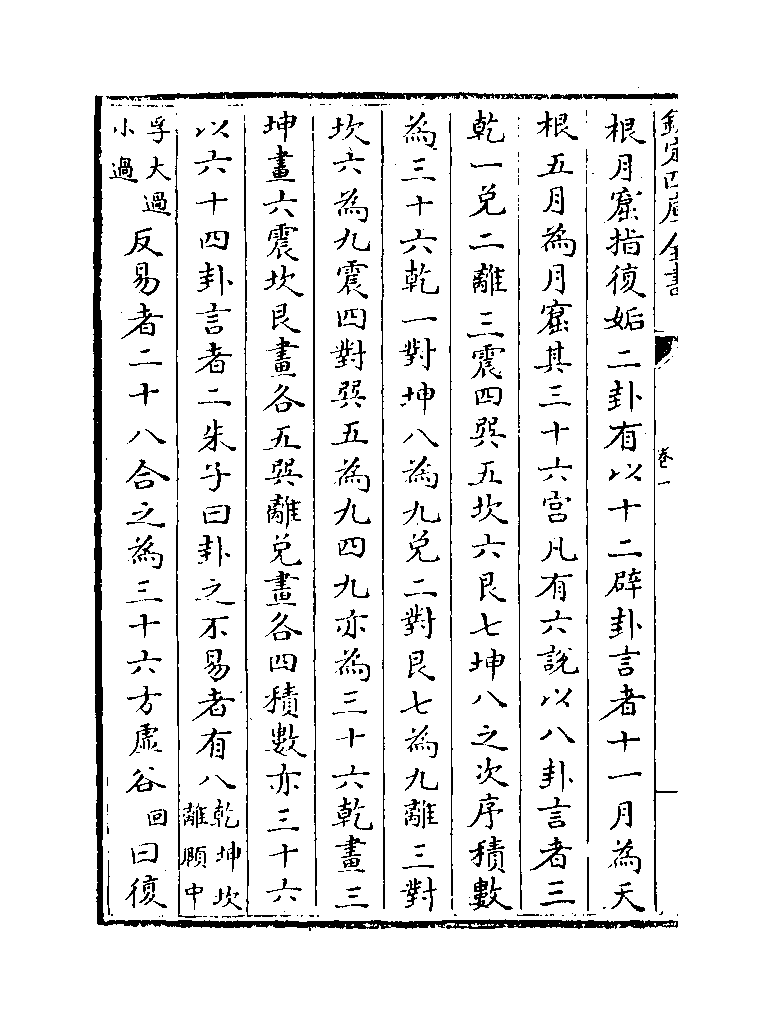 欽定四庫全書
卷一
根月窟指復姤二卦有以十二辟卦言者十一月為天
根五月為月窟其三十六宮凡有六說以八卦言者三
乾一兌二離三震四巽五坎六艮七坤八之次序積數
為三十六乾一對坤八為九兌二對艮七為九離三對
坎六為九震四對巽五為九四九亦為三十六乾畫三
坤畫六震坎艮畫各五巽離兌畫各四積數亦三十六
以六十四卦言者二朱子曰卦之不易者有八乾坤坎離頤中
孚大過小過反易者二十八合之為三十六方虛谷回曰復